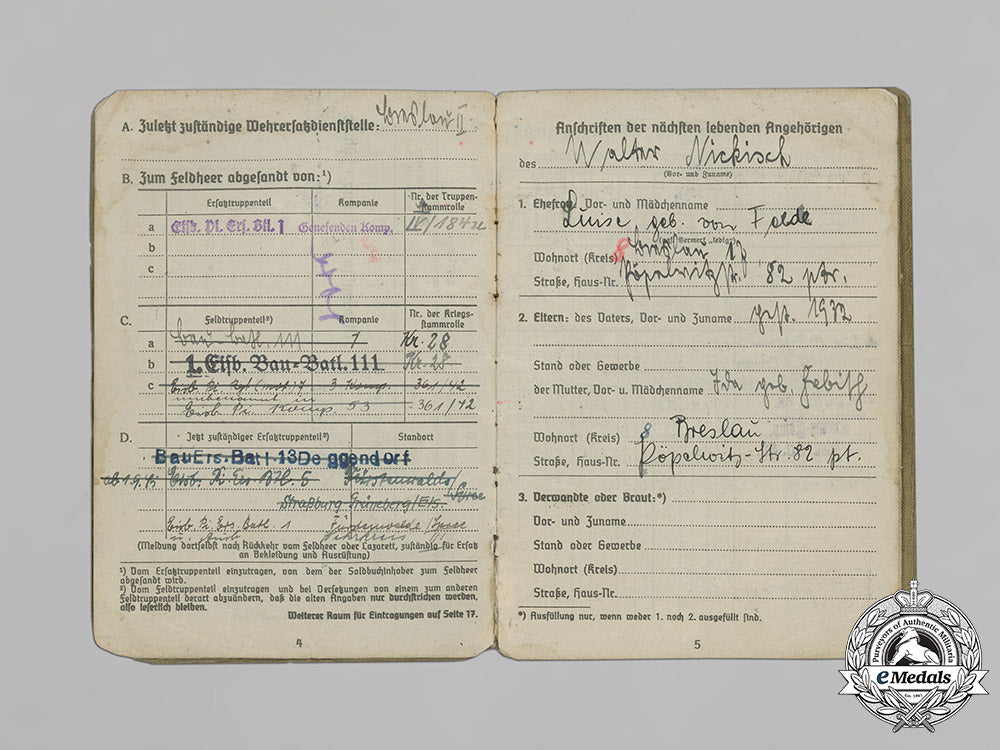 A. Zuletzt zuständige Wehrersatzdienststelle: Breslau II
B. Zum Feldheer abgesandt von:¹)
Ersatztruppenteil Kompanie Nr. der Truppen-
stammrolle
a Eisb. Pi. Ers. Btl. 1 Genesenden Komp. IV/1842
b
c
C. Feldtruppenteil²) Kompanie Nr. der Kriegs-
stammrolle
a Bau-Batl. 111 1 Kr. 28
b 1. Eisb. Bau-Batl. 111 Kr. 28
c Eisb. Pi. 3 Komp. 361/42
Eisb. Pi. Komp. 53 361/42
D. Jetzt zuständiger Ersatztruppenteil²) Standort
BauErs.-Batl-13 Deggendorf
Eisb. Pi. Ers. Btl. 5 Fürstenwalde/
Spree
Straßburg Grüneberg/Els.
Eisb. Pi. Ers. Batl 1 Fürstenwalde/Spree
(Meldung dortselbst nach Rückkehr vom Feldheer oder Lazarett, zuständig für Ersatz
an Bekleidung und Ausrüstung)
¹) Vom Ersatztruppenteil einzutragen, von dem der Soldbuchinhaber zum Feldheer
abgesandt wird.
²) Vom Feldtruppenteil einzutragen und bei Versetzungen von einem zum anderen
Feldtruppenteil derart abzuändern, daß die alten Angaben nur durchstrichen werden,
also leserlich bleiben.
Weiterer Raum für Eintragungen auf Seite 17.
4
Anschriften der nächsten lebenden Angehörigen
des Walter Nickisch
(Vor- und Zuname)
1. Ehefrau: Vor- und Mädchenname
Luise geb. von Felde
(ggf. Vermerk „ledig“)
Wohnort (Kreis) Breslau 18
Straße, Haus-Nr. Pöpelwitzstr. 82 ptr.
2. Eltern: des Vaters, Vor- und Zuname gest. 1932
Stand oder Gewerbe
der Mutter, Vor- u. Mädchenname Ida geb.
Wohnort (Kreis) Breslau
Straße, Haus-Nr. Pöpelwitz-Str 82 pt.
3. Verwandte oder Braut:*)
Vor- und Zuname
Stand oder Gewerbe
Wohnort (Kreis)
Straße, Haus-Nr.
*) Ausfüllung nur, wenn weder 1. noch 2. ausgefüllt sind.
5
Purveyors of Authentic Militaria
eMedals